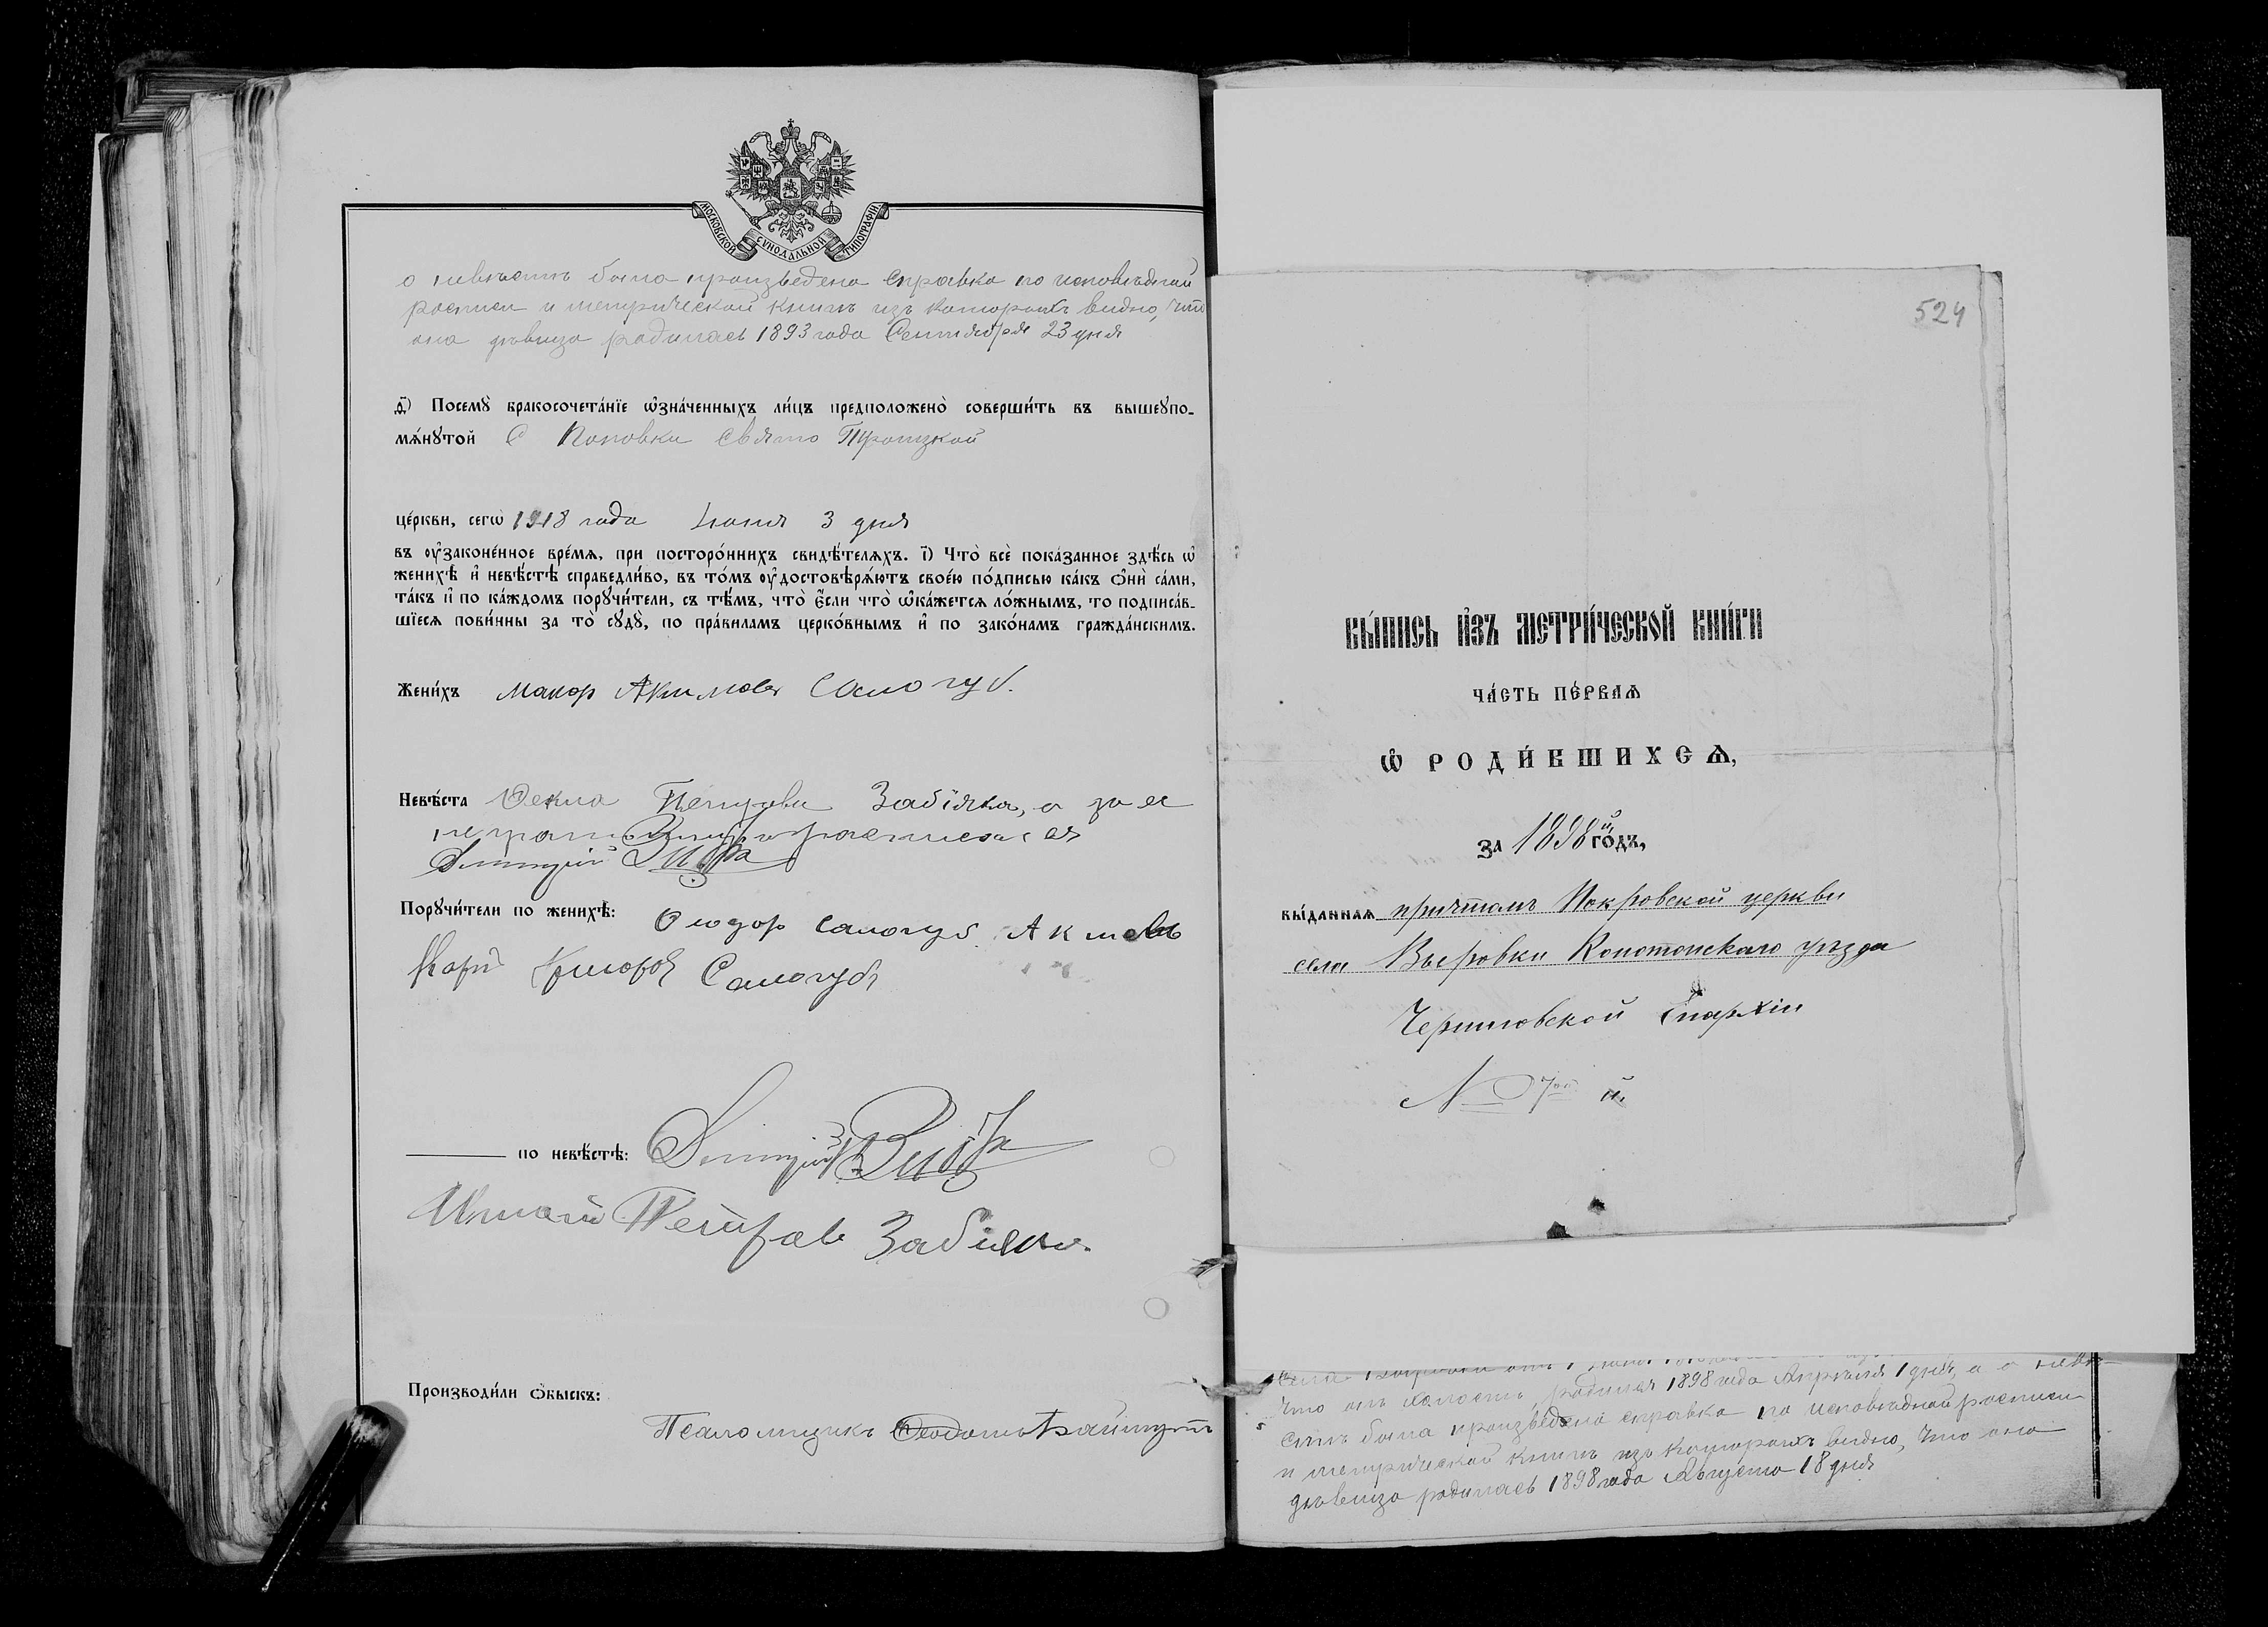 МОСКОВСКОЙ СѴНОДАЛЬНОЙ ТИПОГРАФІИ
о невѣстѣ была произведена справка по исповѣдной
росписи и метрической книгѣ изъ которыхъ видно, что
она дѣвица родилась 1893 года Сентября 23 дня
д҃) Посемꙋ̀ бракосочета́нїе ѡ҆зна́ченныхъ ли́цъ предположено̀ соверши́ть въ вышеꙋпо-
мѧ́нꙋтой С Поповки Свято Троицкой
це́ркви, сегѡ̀ 1918 года Іюня 3 дня
въ ᲂу҆законе́нное вре́мѧ, при посторо́ннихъ свидѣ́телѧхъ. і҃) Что̀ всѐ пока́занное здѣ́сь ѡ҆
женихѣ̀ и҆ невѣ́стѣ справедли́во, въ то́мъ ᲂу҆достовѣрѧ́ютъ свое́ю по́дписью ка́къ ѻ҆нѝ са́ми,
та́къ и҆ по ка́ждомъ порꙋчи́тели, съ тѣ́мъ, что̀ є҆́сли что̀ ѡ҆ка́жетсѧ ло́жнымъ, то подписа́в-
шїесѧ пови́нны за то̀ сꙋдꙋ̀, по пра́виламъ церко́внымъ и҆ по зако́намъ гражда́нскимъ.
Жени́хъ Макар Акимовъ Самогуб.
Невѣ́ста Ѳекла Петрова Забіяка, а за ее
неграмотную росписался
Дмитрій
Порꙋчи́тели по женихѣ̀: Ѳиодор Самогуб Акимовъ
Карп Самогуб
по невѣ́стѣ: Дмитрій
Игнатій Петров Забіяка
Производи́ли ѻ҆́быскъ:
Псаломщикъ Ѳеодотъ
524
ВЫ́ПИСЬ И҆ЗЪ МЕТРИ́ЧЕСКОЙ КНИ́ГИ
ЧА́СТЬ ПЕ́РВАѦ
Ѡ҆ РОДИ́ВШИХСѦ,
за 1898й го́дъ,
вы́даннаѧ причтомъ Покровской церкви
села Выровки Конотопскаго уѣзда
Черниговской Епархіи
№
что онъ холостъ, родился 1898 года Апрѣля 1 дня, а о невѣ-
стѣ была произведена справка по исповѣдной росписи
и метрической книгѣ изъ которыхъ видно, что она
дѣвица родилась 1898 года Августа 18 дня